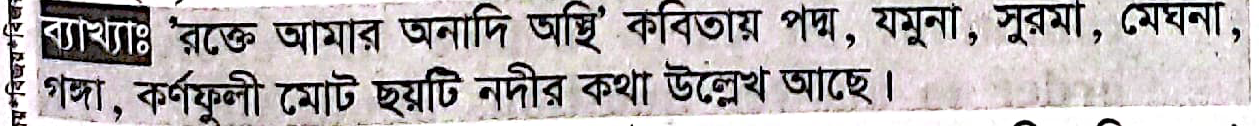 ব্যাখ্যাঃ 'রক্তে আমার অনাদি অস্থি' কবিতায় পদ্ম, যমুনা, সুরমা, মেঘনা,
গঙ্গা, কর্ণফুলী মোট ছয়টি নদীর কথা উল্লেখ আছে।